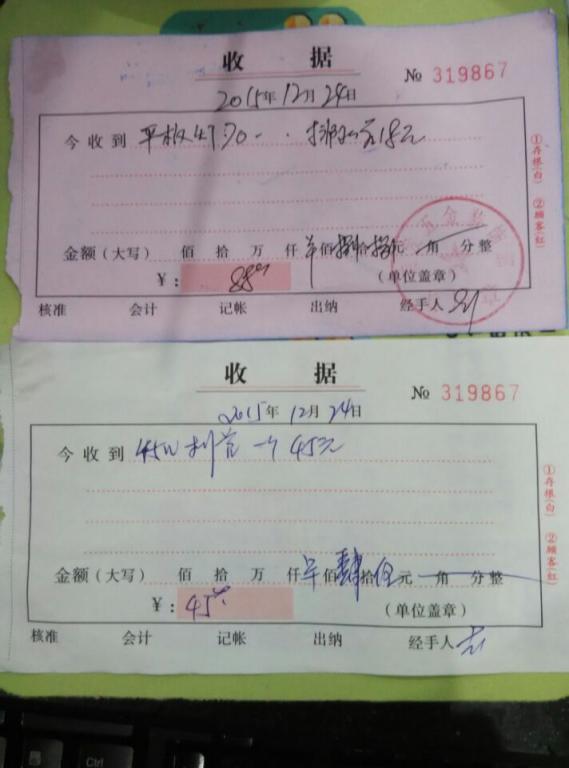 收 据
№ 319867
2015年12月24日
今收到 平板灯70
18元
①存根(白) ②顾客(红)
金额(大写) 佰 拾 万 仟 佰捌拾捌元 角 分整
¥: 88
(单位盖章)
核准 会计 记帐 出纳 经手人
收 据
№ 319867
2015年12月24日
今收到 45W 一个 45元
①存根(白) ②顾客(红)
金额(大写) 佰 拾 万 仟 佰肆拾伍元 角 分整
¥: 45
(单位盖章)
核准 会计 记帐 出纳 经手人
Ctrl